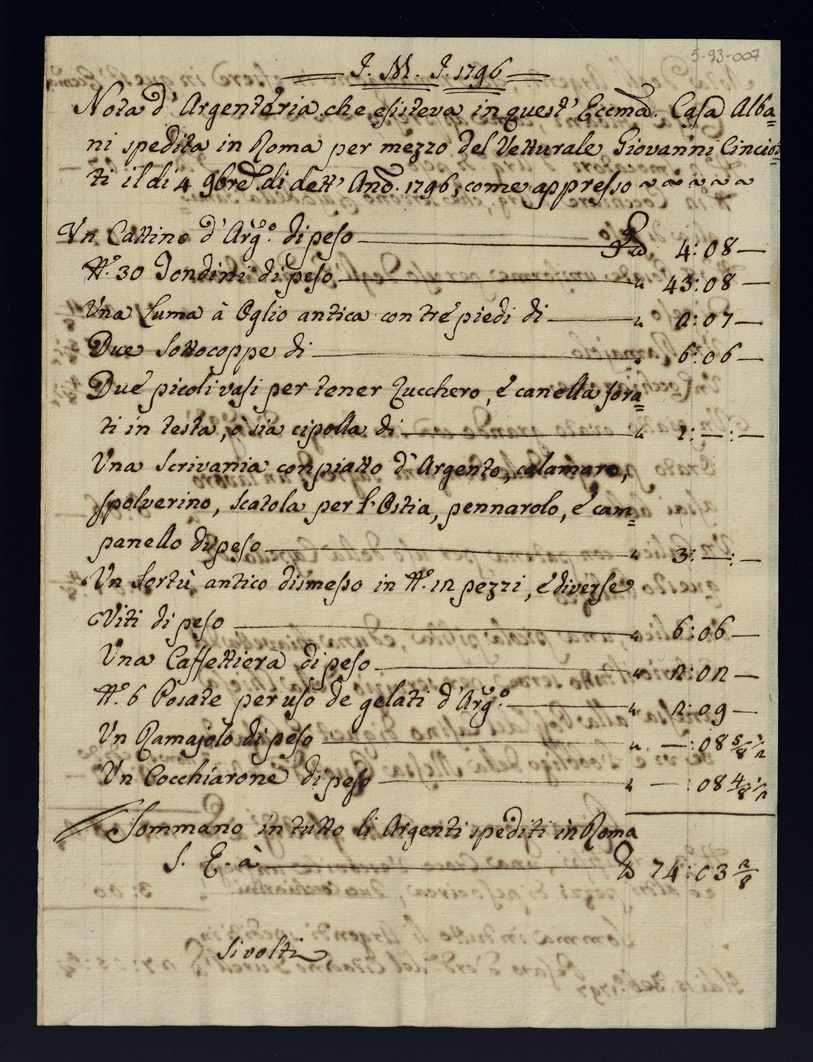 5-93-007
J. M. J. 1796
Nota d'Argenteria che esisteva in quest' Eccma. Casa Alba=
ni spedita in Roma per mezzo del Vetturale Giovanni Cinciot=
ti il di 4 9bre di dett' Ano. 1796, come appresso ~ ~ ~ ~ ~
Un Cattino d'Argo. di peso — 4:08 —
No. 30 Tondini di peso — " 43:08 —
Una Luma à Oglio antica con tré piedi di — " 2:07 —
Due Sottocoppe di — " 6:06 —
Due picoli vasi per tener Zucchero, e canella fora=
ti in testa, ò sia cipolla di — " 2:—:—
Una Scrivania con piatto d'Argento, calamaro,
spolverino, scatola per l'Ostia, pennarolo, e cam=
panello di peso — " 3:—:—
Un Sortù antico dismesso in No. 12 pezzi, e diverse
Viti di peso — " 6:06 —
Una Caffettiera di peso — " 2:02 —
No. 6 Posate per uso de gelati d'Argo. — " 2:09 —
Un Ramajolo di peso — " —:08 5/8 1/2
Un Cocchiarone di peso — " —:08 4/8 1/2
Sommano in tutto li Argenti spediti in Roma
S. E. à — 74:03 2/8
Si volti